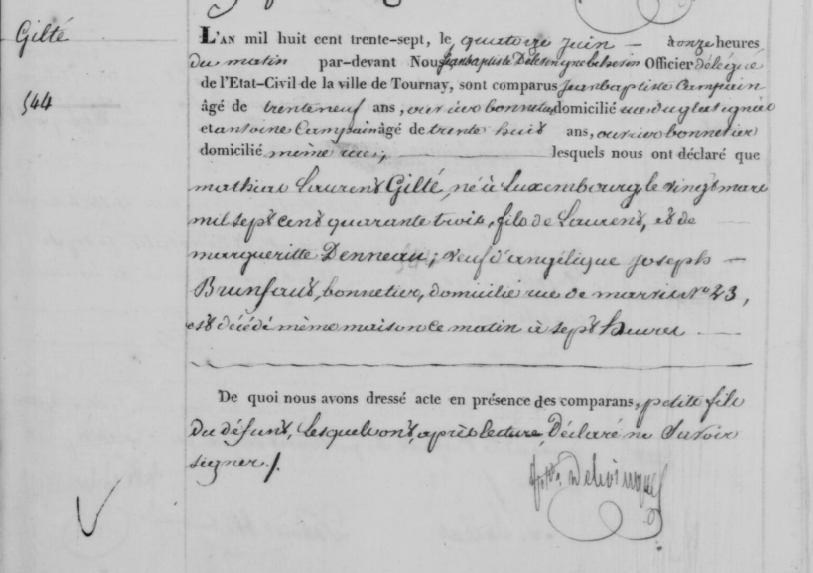 Gilté
544
L'AN mil huit cent trente-sept, le quatorze juin — à onze heures
du matin par-devant Nous jeanbaptiste Delevingne Officier délégué
de l'Etat-Civil de la ville de Tournay, sont comparus jeanbaptiste Campain
âgé de trente neuf ans, ouvrier bonnetier domicilié rue du
et antoine Campain âgé de trente huit ans, ouvrier bonnetier
domicilié même rue, lesquels nous ont déclaré que
mathieu Laurent Gilté, né à Luxembourg le vingt mars
mil sept cent quarante trois, fils de Laurent, et de
margueritte Denneau; veuf d'angélique joseph —
Brunfaut, bonnetier, domicilié rue de marvis n° 23,
est décédé même maison ce matin à sept heures —
De quoi nous avons dressé acte en présence des comparans, petits fils
du défunt, lesquels ont, après lecture, déclaré ne savoir
signer /.
Delevingne